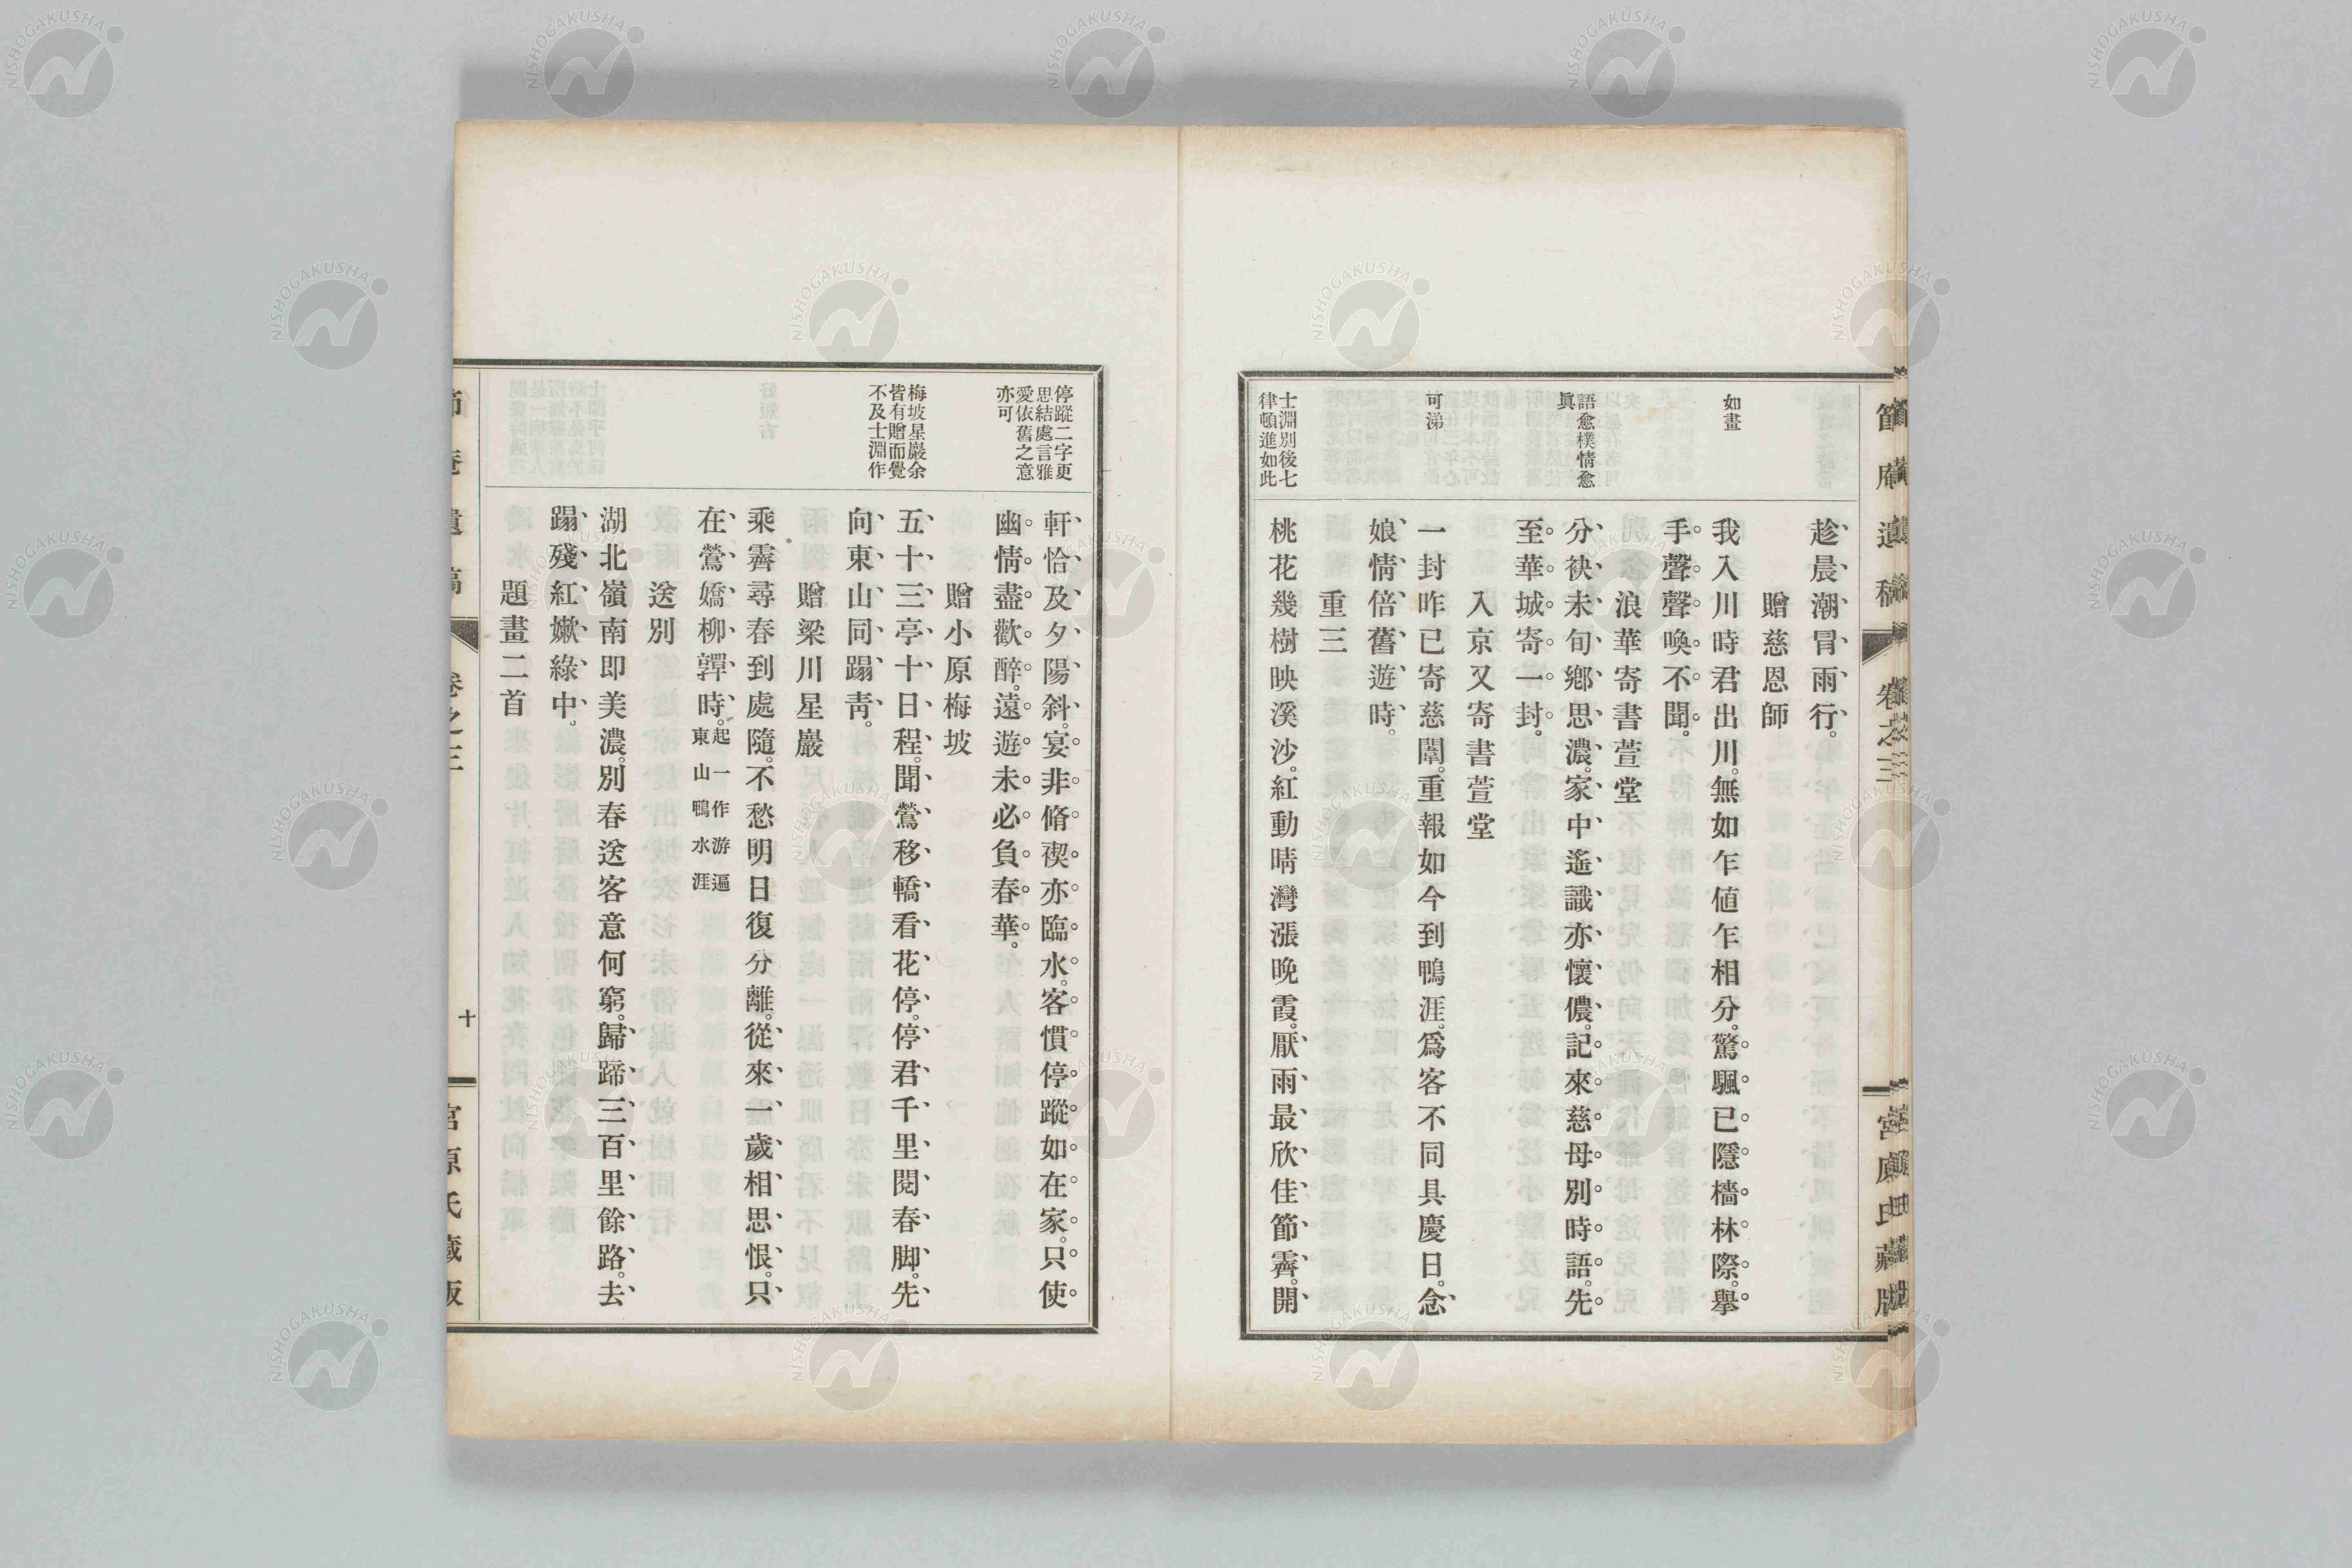 趁晨潮冒雨行。
贈慈恩師
如畫
我入川時君出川。無如乍値乍相分。驚颿已隱檣林際。擧
手聲聲喚不聞。
浪華寄書萱堂
語愈樸情愈
眞
分袂未旬鄕思濃。家中遙識亦懷儂。記來慈母別時語。先
至華城寄一封。
入京又寄書萱堂
可涕
一封昨已寄慈闈。重報如今到鴨涯。爲客不同具慶日。念
娘情倍舊遊時。
重三
士淵別後七
律頓進如此
桃花幾樹映溪沙。紅動晴灣漲晚霞。厭雨最欣佳節霽。開
節庵遺稿
卷之三
宮原氏藏版
停蹤二字更
思結處言雅
愛依舊之意
亦可
軒恰及夕陽斜。宴非脩禊亦臨水。客慣停蹤如在家。只使
幽情盡歡醉。遠遊未必負春華。
贈小原梅坡
梅坡星巖余
皆有贈而覺
不及士淵作
五十三亭十日程。聞鶯移轎看花停。停君千里閱春脚。先
向東山同蹋靑。
贈梁川星巖
乘霽尋春到處隨。不愁明日復分離。從來一歲相思恨。只
在鶯嬌柳嚲時。起一作游遍
東山鴨水涯
送別
湖北嶺南即美濃。別春送客意何窮。歸蹄三百里餘路。去
蹋殘紅嫰綠中。
題畫二首
節庵遺稿
卷之三
十
宮原氏藏版
NISHOGAKUSHA